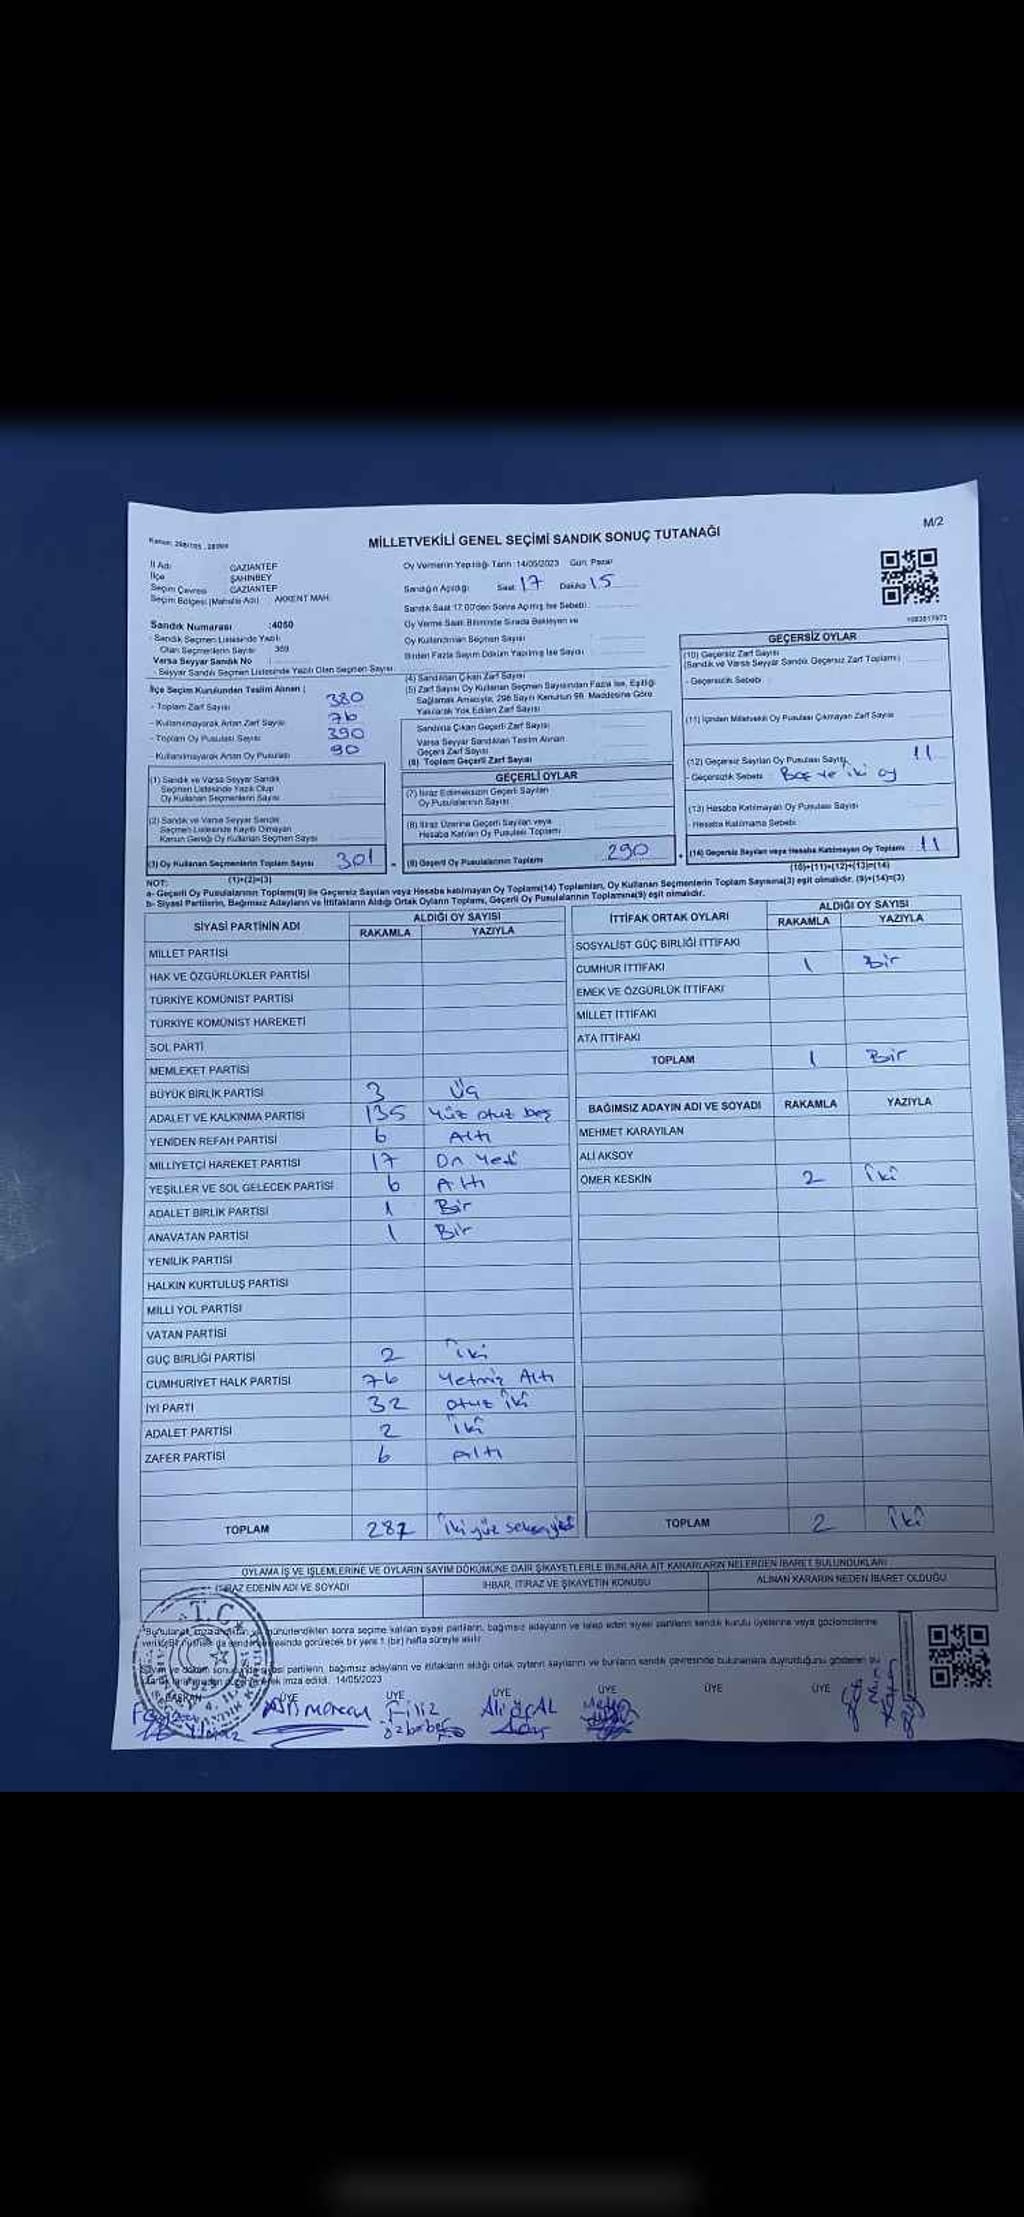 M/2
Kanun: 298/105, 2839/4
MİLLETVEKİLİ GENEL SEÇİMİ SANDIK SONUÇ TUTANAĞI
İl Adı GAZİANTEP
İlçe ŞAHİNBEY
Seçim Çevresi GAZİANTEP
Seçim Bölgesi (Mahalle Adı) AKKENT MAH.
Sandık Numarası :4050
- Sandık Seçmen Listesinde Yazılı
Olan Seçmenlerin Sayısı 369
Varsa Seyyar Sandık No
- Seyyar Sandık Seçmen Listesinde Yazılı Olan Seçmen Sayısı
Oy Vermenin Yapıldığı Tarih :14/05/2023 Gün: Pazar
Sandığın Açıldığı: Saat 17 Dakika 15
Sandık Saat 17.00'den Sonra Açılmış İse Sebebi:
Oy Verme Saati Bitiminde Sırada Bekleyen ve
Oy Kullandırılan Seçmen Sayısı
Birden Fazla Sayım Döküm Yapılmış İse Sayısı
İlçe Seçim Kurulundan Teslim Alınan ;
- Toplam Zarf Sayısı 380
- Kullanılmayarak Artan Zarf Sayısı 76
- Toplam Oy Pusulası Sayısı 390
- Kullanılmayarak Artan Oy Pusulası 90
(1) Sandık ve Varsa Seyyar Sandık
Seçmen Listesinde Yazılı Olup
Oy Kullanan Seçmenlerin Sayısı
(2) Sandık ve Varsa Seyyar Sandık
Seçmen Listesinde Kayıtlı Olmayan
Kanun Gereği Oy Kullanan Seçmen Sayısı
(3) Oy Kullanan Seçmenlerin Toplam Sayısı 301
(1)+(2)=(3)
(4) Sandıktan Çıkan Zarf Sayısı
(5) Zarf Sayısı Oy Kullanan Seçmen Sayısından Fazla İse, Eşitliği
Sağlamak Amacıyla, 298 Sayılı Kanunun 98. Maddesine Göre
Yakılarak Yok Edilen Zarf Sayısı
Sandıkta Çıkan Geçerli Zarf Sayısı
Varsa Seyyar Sandıktan Teslim Alınan
Geçerli Zarf Sayısı
(6) Toplam Geçerli Zarf Sayısı
GEÇERLİ OYLAR
(7) İtiraz Edilmeksizin Geçerli Sayılan
Oy Pusulalarının Sayısı
(8) İtiraz Üzerine Geçerli Sayılan veya
Hesaba Katılan Oy Pusulası Toplamı
(9) Geçerli Oy Pusulalarının Toplamı 290
GEÇERSİZ OYLAR
(10) Geçersiz Zarf Sayısı
(Sandık ve Varsa Seyyar Sandık Geçersiz Zarf Toplamı)
- Geçersizlik Sebebi
(11) İçinden Milletvekili Oy Pusulası Çıkmayan Zarf Sayısı
(12) Geçersiz Sayılan Oy Pusulası Sayısı 11
- Geçersizlik Sebebi Boş ve iki oy
(13) Hesaba Katılmayan Oy Pusulası Sayısı
- Hesaba Katılmama Sebebi
(14) Geçersiz Sayılan veya Hesaba Katılmayan Oy Toplamı 11
(10)+(11)+(12)+(13)=(14)
NOT:
a- Geçerli Oy Pusulalarının Toplamı(9) ile Geçersiz Sayılan veya Hesaba katılmayan Oy Toplamı(14) Toplamları, Oy Kullanan Seçmenlerin Toplam Sayısına(3) eşit olmalıdır. (9)+(14)=(3)
b- Siyasi Partilerin, Bağımsız Adayların ve İttifakların Aldığı Ortak Oyların Toplamı, Geçerli Oy Pusulalarının Toplamına(9) eşit olmalıdır.
SİYASİ PARTİNİN ADI ALDIĞI OY SAYISI
RAKAMLA YAZIYLA
MİLLET PARTİSİ
HAK VE ÖZGÜRLÜKLER PARTİSİ
TÜRKİYE KOMÜNİST PARTİSİ
TÜRKİYE KOMÜNİST HAREKETİ
SOL PARTİ
MEMLEKET PARTİSİ
BÜYÜK BİRLİK PARTİSİ 3 Üç
ADALET VE KALKINMA PARTİSİ 135 Yüz otuz beş
YENİDEN REFAH PARTİSİ 6 Altı
MİLLİYETÇİ HAREKET PARTİSİ 17 On Yedi
YEŞİLLER VE SOL GELECEK PARTİSİ 6 Altı
ADALET BİRLİK PARTİSİ 1 Bir
ANAVATAN PARTİSİ 1 Bir
YENİLİK PARTİSİ
HALKIN KURTULUŞ PARTİSİ
MİLLİ YOL PARTİSİ
VATAN PARTİSİ
GÜÇ BİRLİĞİ PARTİSİ 2 iki
CUMHURİYET HALK PARTİSİ 76 Yetmiş Altı
İYİ PARTİ 32 otuz iki
ADALET PARTİSİ 2 iki
ZAFER PARTİSİ 6 Altı
TOPLAM 287 iki yüz seksen yedi
İTTİFAK ORTAK OYLARI ALDIĞI OY SAYISI
RAKAMLA YAZIYLA
SOSYALİST GÜÇ BİRLİĞİ İTTİFAKI
CUMHUR İTTİFAKI 1 Bir
EMEK VE ÖZGÜRLÜK İTTİFAKI
MİLLET İTTİFAKI
ATA İTTİFAKI
TOPLAM 1 Bir
BAĞIMSIZ ADAYIN ADI VE SOYADI RAKAMLA YAZIYLA
MEHMET KARAYILAN
ALİ AKSOY
ÖMER KESKİN 2 iki
TOPLAM 2 iki
OYLAMA İŞ VE İŞLEMLERİNE VE OYLARIN SAYIM DÖKÜMÜNE DAİR ŞİKAYETLERLE BUNLARA AİT KARARLARIN NELERDEN İBARET BULUNDUKLARI
İTİRAZ EDENİN ADI VE SOYADI İHBAR, İTİRAZ VE ŞİKAYETİN KONUSU ALINAN KARARIN NEDEN İBARET OLDUĞU
mühürlendikten sonra seçime katılan siyasi partilerin, bağımsız adayların ve talep eden siyasi partilerin sandık kurulu üyelerine veya gözlemcilerine
görülecek bir yere 1 (bir) hafta süreyle asılır.
partilerin, bağımsız adayların ve ittifakların aldığı ortak oyların sayılarını ve bunların sandık çevresinde bulunanlara duyurulduğunu gösteren bu
imza edildi. 14/05/2023
T.C.
BAŞKAN ÜYE ÜYE ÜYE ÜYE ÜYE ÜYE
Filiz
Ali